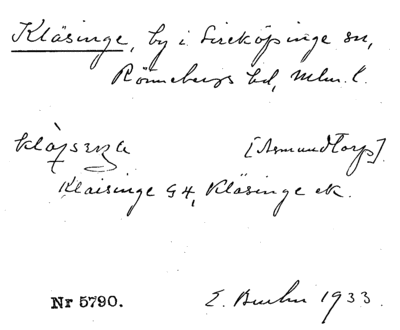 Kläsinge, by i Sireköpinge sn,
Rönnebergs hd, Mlm. l.
[Asmundtorp].
Kläisinge G4, Kläsinge ek.
Nr 5790.
E. 1933